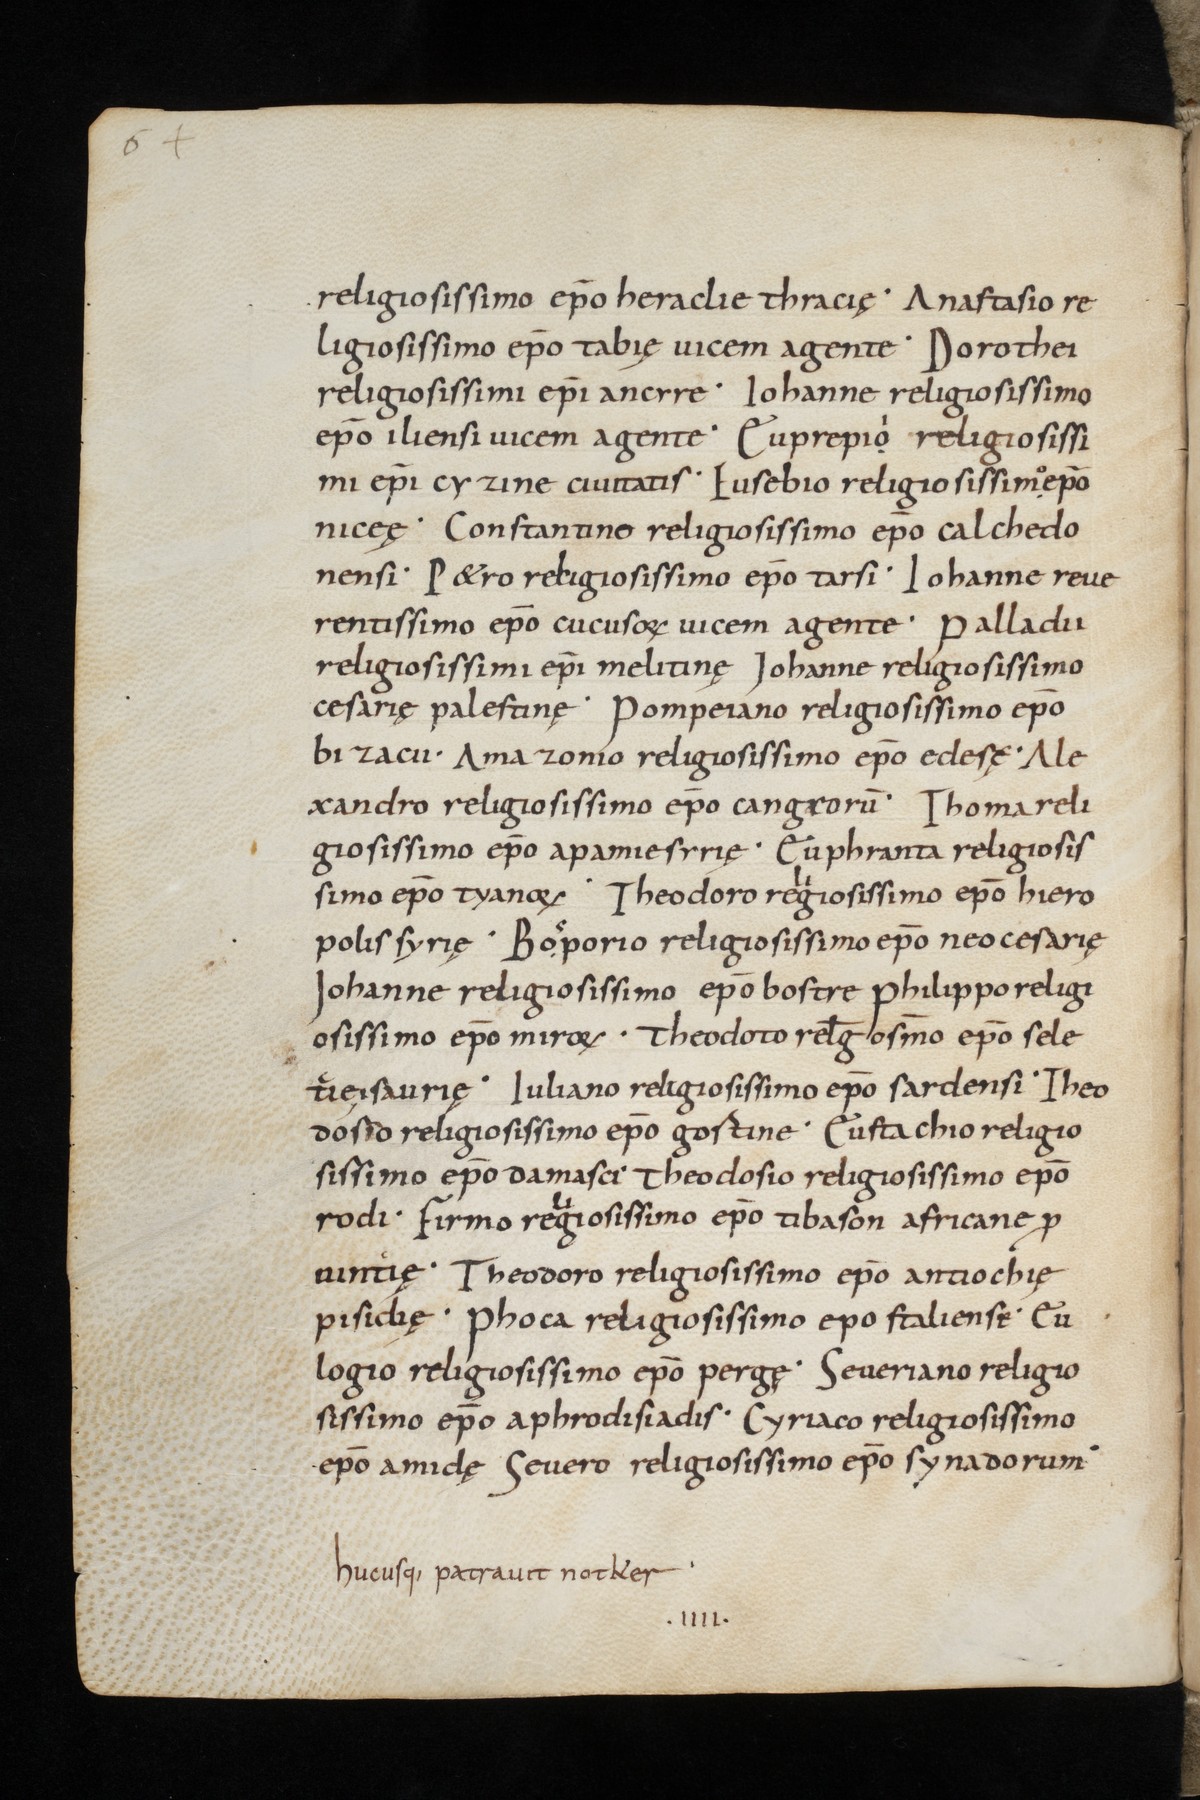 64
religiosissimo ep̄o heraclie thracię· Anastasio re
ligiosissimo ep̄o tabię uicem agente· Dorothei
religiosissimi ep̄i ancyre· Iohanne religiosissimo
ep̄o iliensi uicem agente· Euprepiọi religiosissi
mi ep̄i cyzine ciuitatis· Eusebio religiosissimo ep̄o
niceę· Constantino religiosissimo ep̄o calchedo
nensi· P&ro religiosissimo ep̄o tarsi· Iohanne reue
rentissimo ep̄o cucusoꝝ uicem agente· Palladii
religiosissimi ep̄i melitinę Iohanne religiosissimo
cesarię palestinę· Pompeiano religiosissimo ep̄o
bizacii· Amazonio religiosissimo ep̄o edesę· Ale
xandro religiosissimo ep̄o cangrorū· Thoma reli
giosissimo ep̄o apamie syrię· Euphranta religiosis
simo ep̄o tyanoꝝ· Theodoro religiosissimo ep̄o hiero
polis syrię· Bosporio religiosissimo ep̄o neocesarię
Iohanne religiosissimo ep̄o bostre Philippo religi
osissimo ep̄o miroꝝ· Theodoto relḡiosm̄o ep̄o sele
tię isaurię· Iuliano religiosissimo ep̄o sardensi· Theo
dosio religiosissimo ep̄o gostine· Eustachio religio
sissimo ep̄o damasci· Theodosio religiosissimo ep̄o
rodi· Firmo religiosissimo ep̄o tibason africane ꝓ
uintię· Theodoro religiosissimo ep̄o antiochię
pisidię· Phoca religiosissimo epo staliense· Eu
logio religiosissimo ep̄o pergę· Seueriano religio
sissimo ep̄o aphrodisiadis· Cyriaco religiosissimo
ep̄o amidę Seuero religiosissimo ep̄o synadorum·
hucusq; patrauit notker·
·IIII·